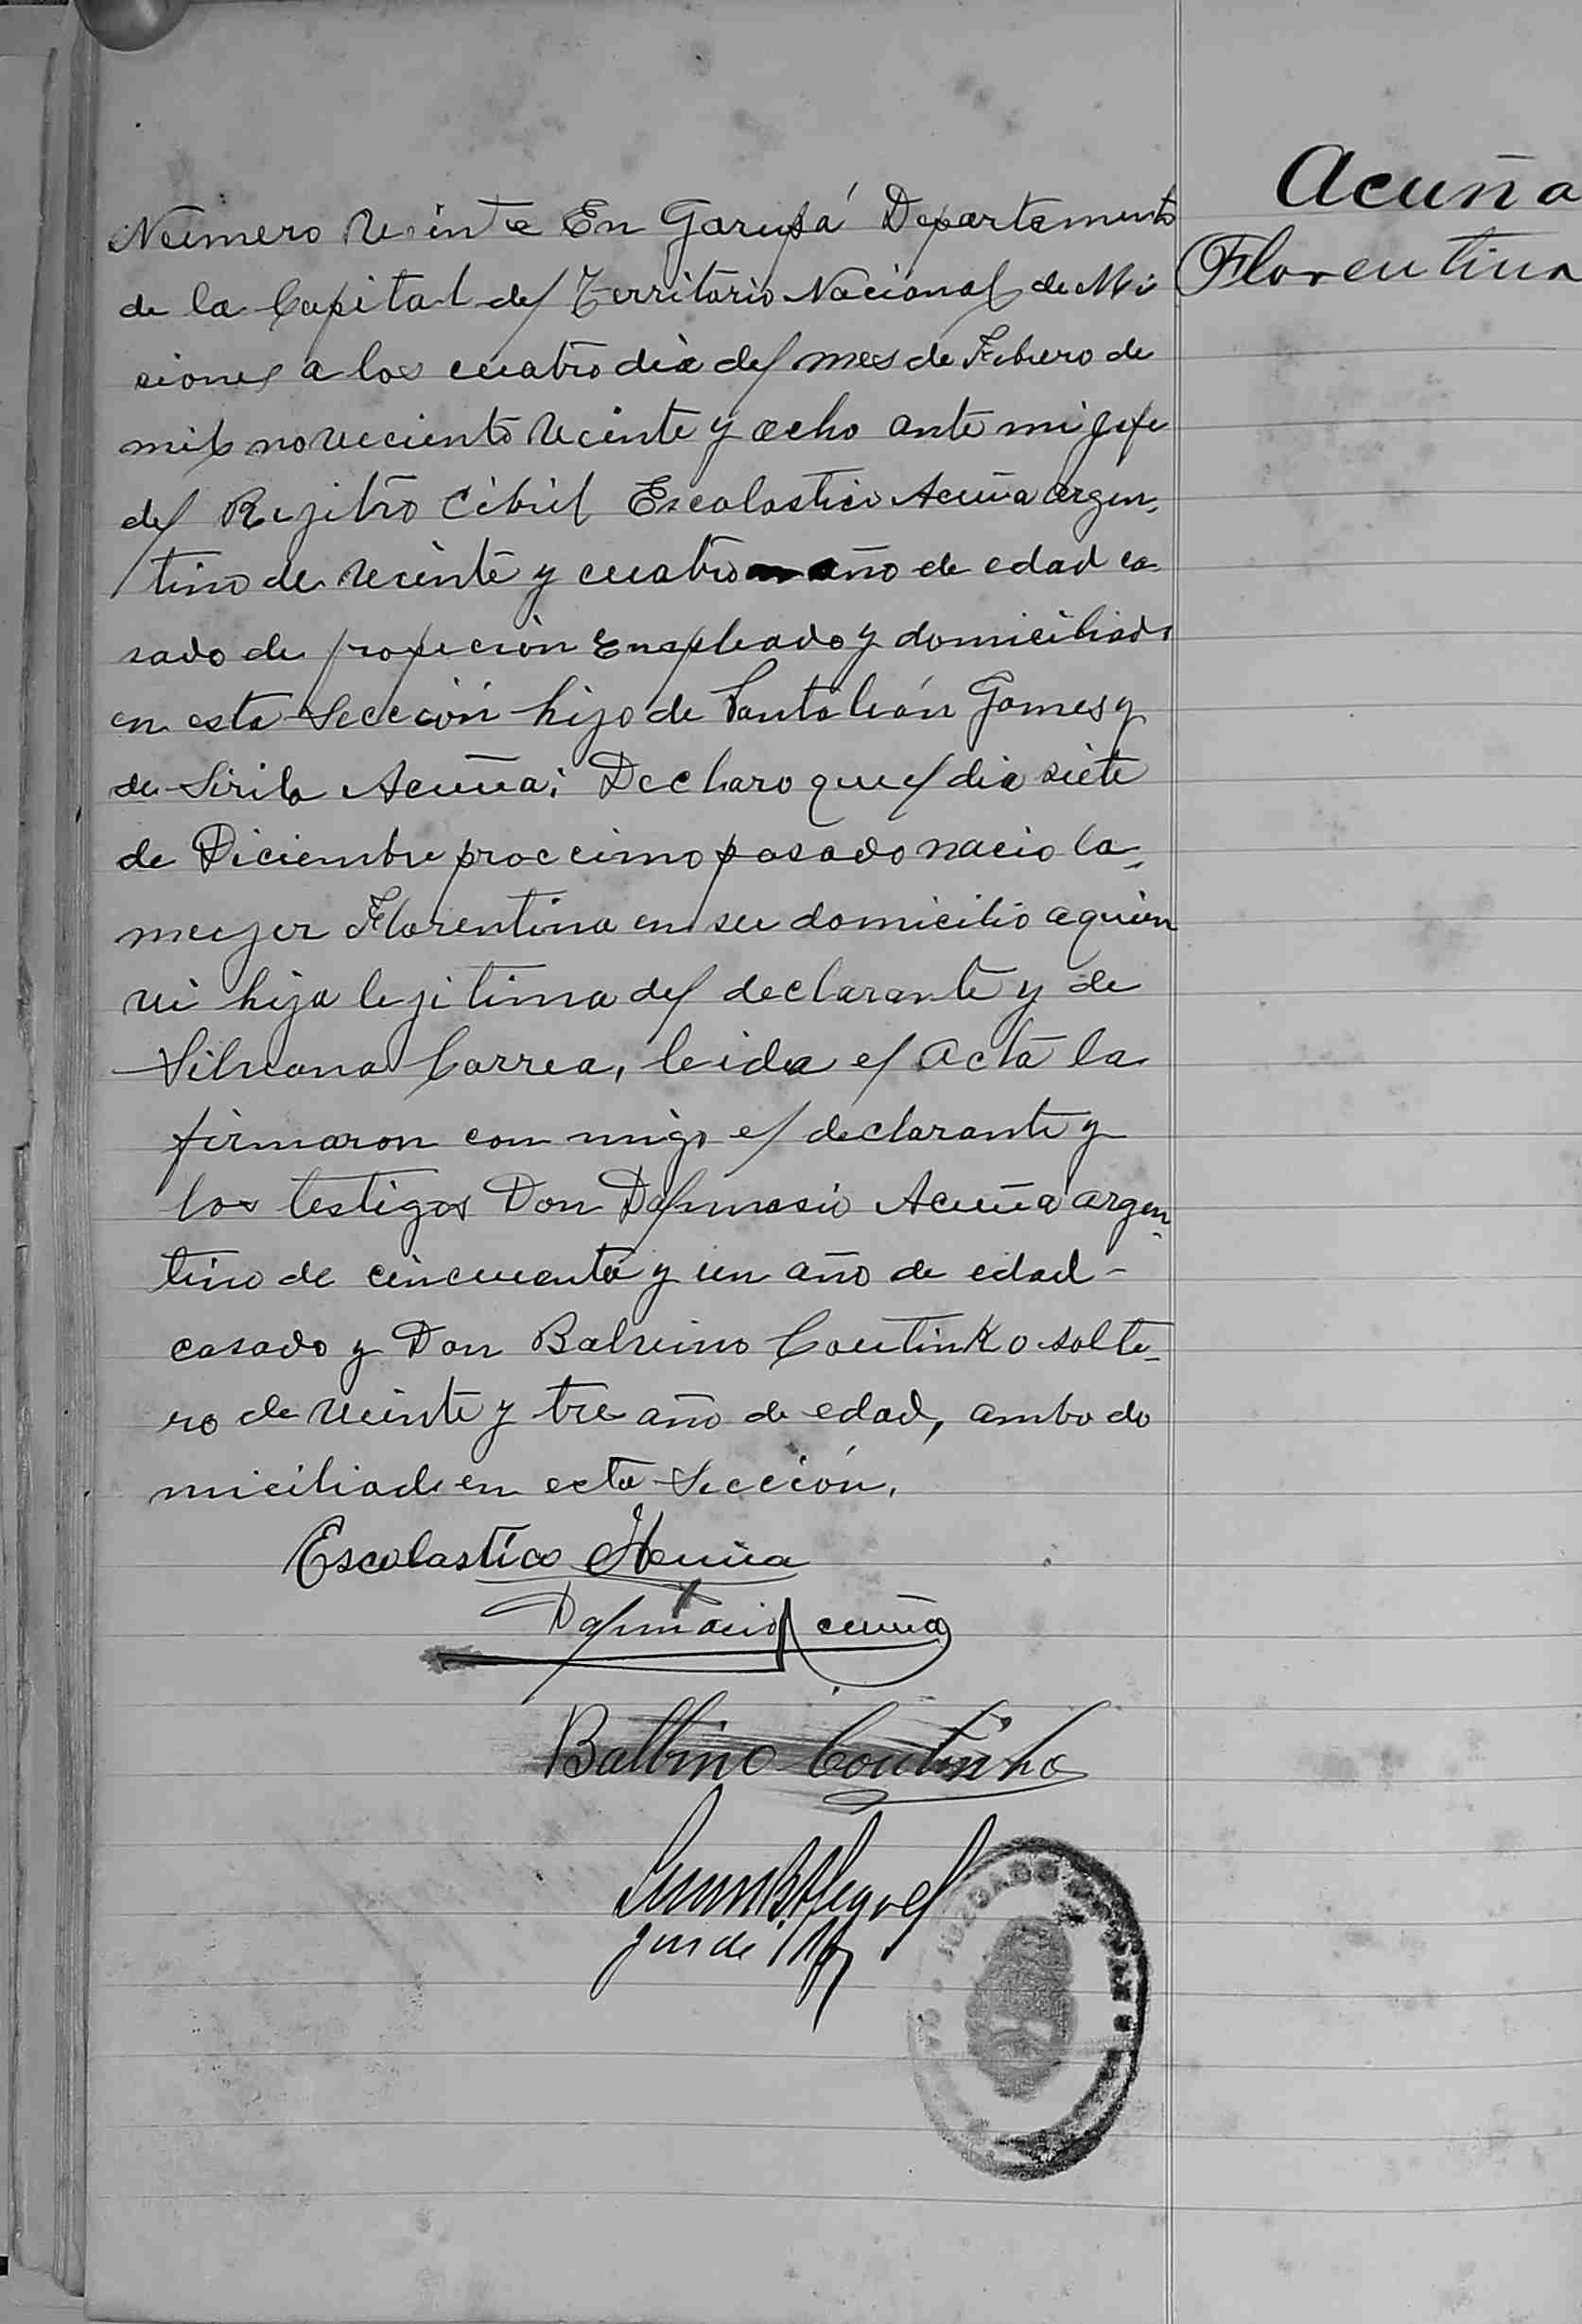 Acuña
Florentina
Número Veinte En Garupá Departamento
de la Capital del Territorio Nacional de Mi
siones a los cuatro dia del mes de Febrero de
mil novecciento veinte y ocho ante mi Jefe
del Rejitro Cibil Escolastico Acuña argen,
tino de veinte y cuatro año de edad ca
sado de profecion Enspleado y domiciliado
en esta Sección hijo de Pantaleón Gomes y
de Sirila Acuña; Declaro que el dia siete
de Diciembre proccimo pasado nacio la
mujer Florentina en su domicilio a quien
vi hija lejitima del declarante y de
Silveana Correa, leida el Acta la
firmaron con migo el declarante y
los testigos Don Dalmasio Acuña argen
tino de cincuenta y un año de edad -
casado y Don Balvino Coutinho solte-
ro de veinte y tre año de edad, ambo do
miciliado en esta Sección.
Escolastico Acuña
Dalmacio Acuña
Balbino Coutinho
Juez de Paz
JUZGADO